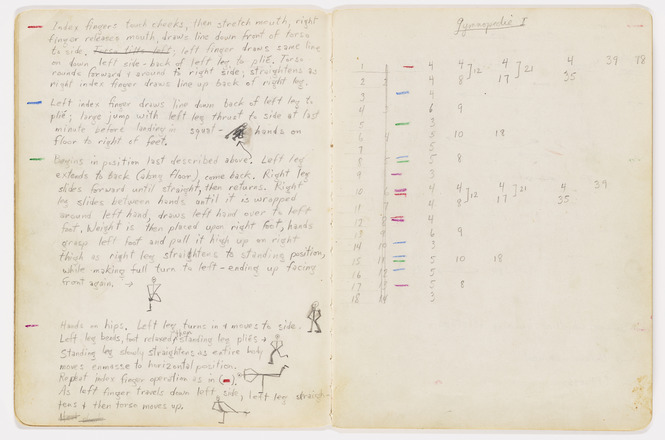 Index fingers touch cheeks, then stretch mouth, right
finger releases mouth, draws line down front of torso
to side. Torso tilts left; left finger draws same line
on down left side - back of left leg to plié. Torso
rounds forward & around to right side; straightens as
right index finger draws line up back of right leg.
Left index finger draws line down back of left leg to
plié; large jump with left leg thrust to side at last
minute before landing in squat - hands on
floor to right of feet.
Begins in position last described above. Left leg
extends to back (along floor), come back. Right leg
slides forward until straight, then returns. Right
leg slides between hands until it is wrapped
around left hand, draws left hand over to left
foot. Weight is then placed upon right foot, hands
grasp left foot and pull it high up on right
thigh as right leg straightens to standing position,
while making full turn to left - ending up facing
front again. →
Hands on hips. Left leg turns in & moves to side.
Left leg bends, foot relaxed, standing leg pliés &
Standing leg slowly straightens as entire body
moves enmasse to horizontal position.
Repeat index finger operation as in (-).
As left finger travels down left side, left leg straigh-
tens & then torso moves up.
Gymnopedié I
1 1 4 4 4 4 39 78
]12 ]21
2 2 4 8 17 35
3 4
4 3 6 9
5 3
6 4 5 10 18
7 5
8 5 5 8
9 3
10 6 4 4 4 4 39
]12 ]21
11 7 4 8 17 35
12 8 4
13 9 6 9
14 10 3
15 11 5 10 18
16 12 5
17 13 5 8
18 14 3